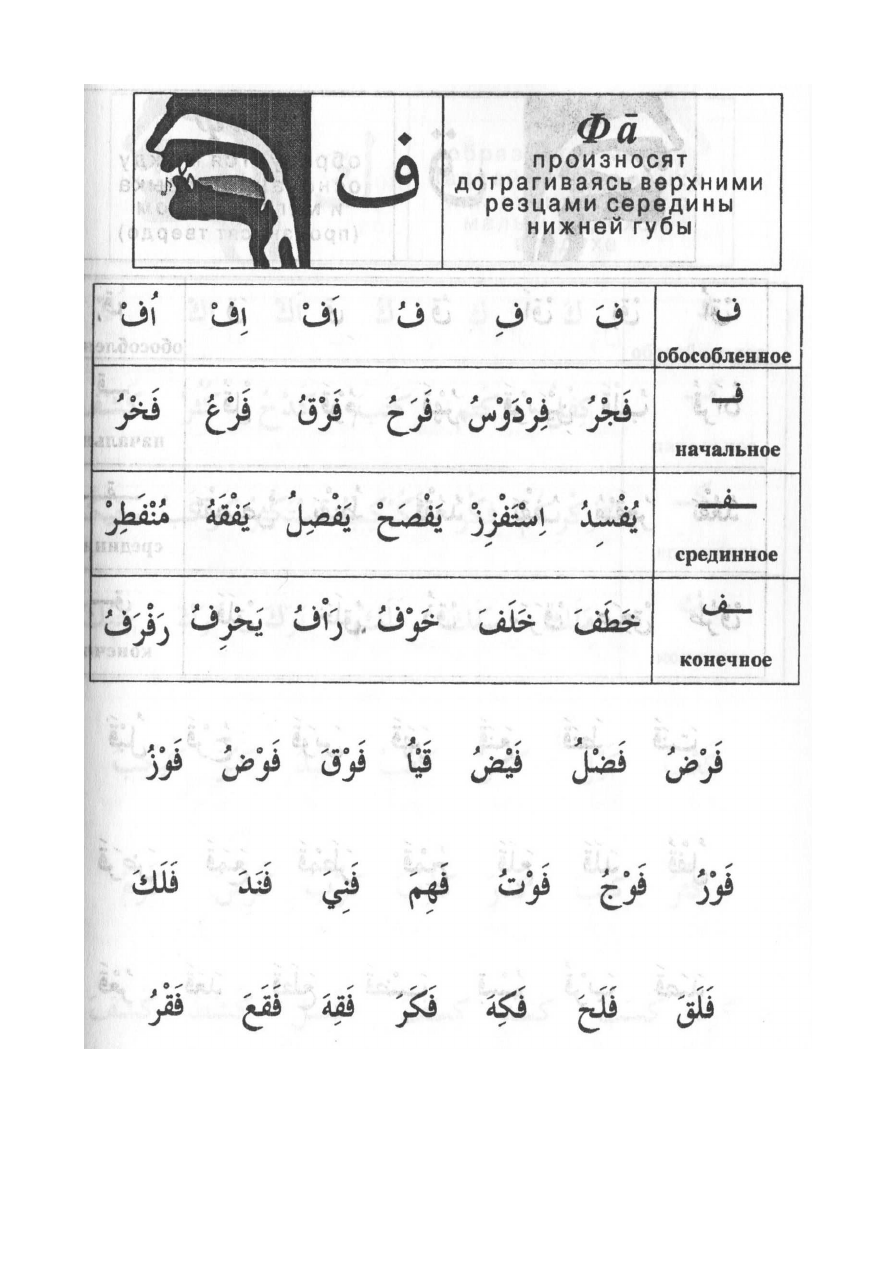 ف
Фā
произносят
дотрагиваясь верхними
резцами середины
нижней губы
ف فَ فِ فُ اَفْ اِفْ اُفْ
обособленное
فـ فَجْرُ فِرْدَوْسُ فَرَحُ فَرْقُ فَرْعُ فَخْرُ
начальное
ـفـ يُفْسِدُ اِسْتَفْزِزْ يَفْصَحْ يَفْصِلُ يَفْقَهُ مُنْفَطِرْ
срединное
ـف خَطَفَ خَلَفَ خَوْفُ رَاْفُ يَحْرِفُ رَفْرَفُ
конечное
فَرْضُ فَضْلُ فَيْضُ فَيْاُ فَوْقَ فَوْضُ فَوْزُ
فَوْرُ فَوْجُ فَوْتُ فَهِمَ فَنِيَ فَنَدَ فَلَكَ
فَلَقَ فَلَحَ فَكِهَ فَكَرَ فَقِهَ فَقَعَ فَقْرُ